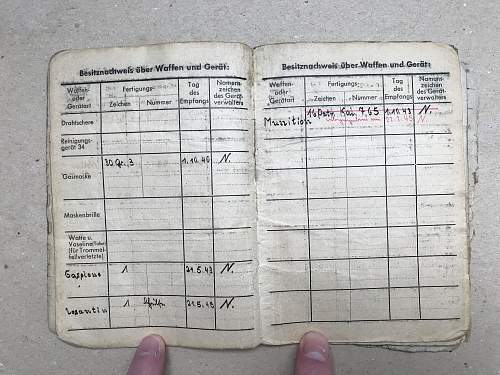 Besitznachweis über Waffen und Gerät:
Waffen- oder Geräteart
Fertigungs-
Zeichen Nummer
Tag des Empfangs
Namens- zeichen des Gerät- verwalters
Drahtschere
Reinigungs- gerät 34
Gasmaske 30 Gr. 3 1.10.40 N.
Maskenbrille
Watte u. Vaseline (für Trommel- fellverletzte)
Gasplane 1 21.5.43 N.
Losantin 1 21.5.43 N.
Besitznachweis über Waffen und Gerät:
Waffen- oder Geräteart
Fertigungs-
Zeichen Nummer
Tag des Empfangs
Namens- zeichen des Gerät- verwalters
Munition 16 Patr. Kal. 7,65 1.10.43 N.